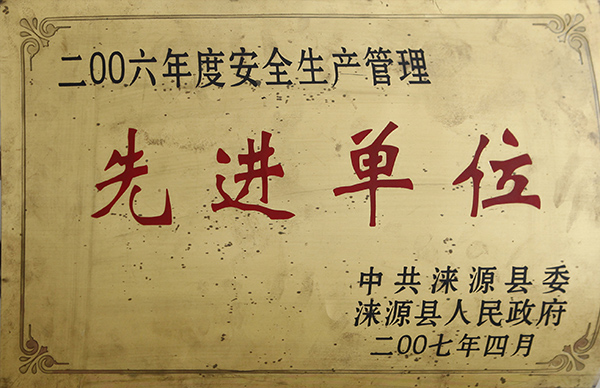 二00六年度安全生产管理
先进单位
中共涞源县委
涞源县人民政府
二00七年四月